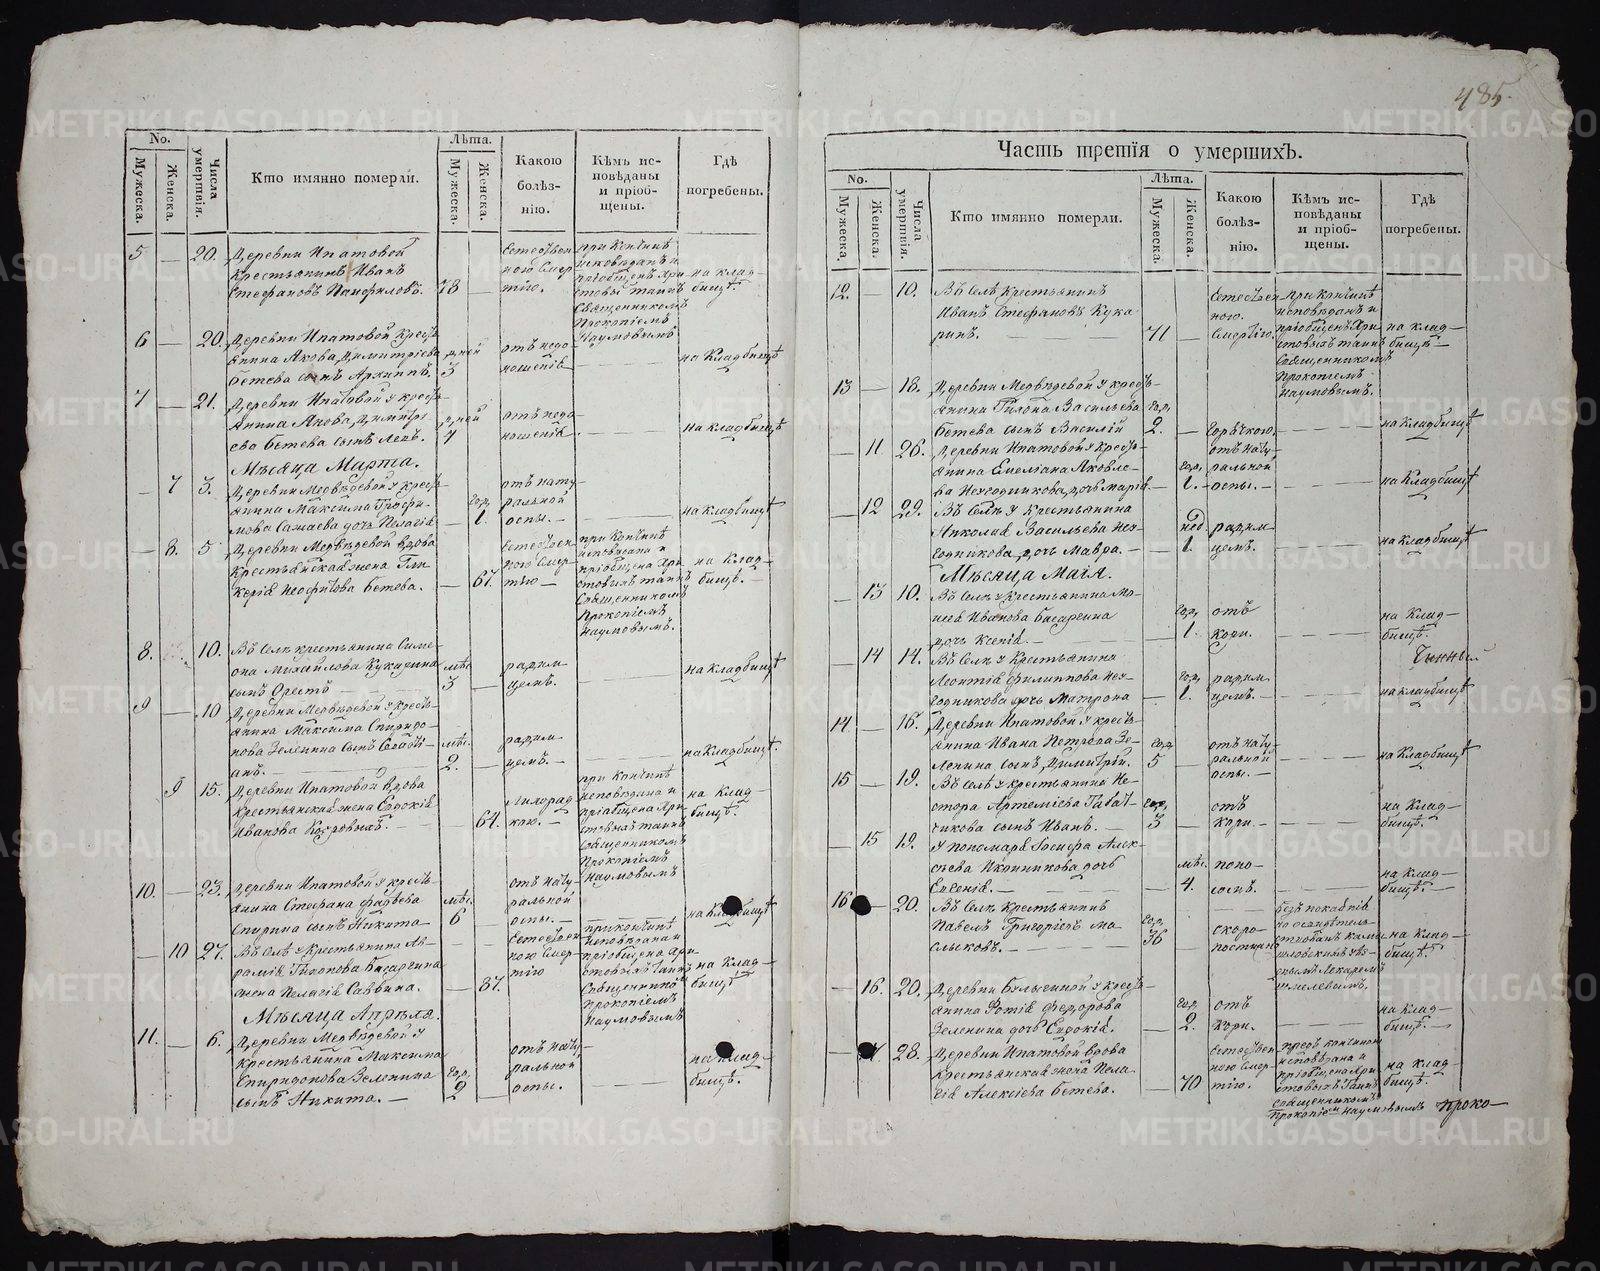 485.
No.
Мужеска.
Женска.
Числа умертвія.
Кто имянно померли.
Лѣта.
Мужеска.
Женска.
Какою болѣз-
нію.
Кѣмъ ис-
повѣданы
и пріоб-
щены.
Гдѣ
погребены.
5 — 20. Деревни Ипатовой
Крестьянинъ Иванъ
Стефановъ Панфиловъ. 78 —
Естествен
ною Смер
тію.
при кончинѣ
исповѣданъ и
пріобщенъ Хри
стовыхъ таинъ
Священникомъ
Прокопіемъ
Наумовымъ
на клад-
бищѣ.
6 — 20. Деревни Ипатовой Кресть
янина Якова Димитріева
Бетева сынъ Архиппъ. дней 3 —
отъ недо
ношенія
на Кладбищѣ
7 — 21. Деревни Ипатовой у кресть-
янина Якова Димитрі
ева Бетева сынъ Левъ. дней 7
отъ недо
ношенія
на кладбищѣ
Мѣсяца Марта.
— 7 3. Деревни Медвѣдевой у кресть
янина Максима Трофи-
мова дочь Пелагія — год. 1.
отъ нату
ральной
оспы. —
на кладбищѣ
— 8. 5 Деревни Медвѣдевой вдова
Крестьянская жена Гли
керія Неофитова Бетева. — 67.
Естествен
ною Смер-
тію —
при кончинѣ
исповѣдана и
пріобщена Хри
стовыхъ таинъ
Священникомъ
Прокопіемъ
Наумовымъ.
на Клад-
бищѣ. —
8. 10. Въ Селѣ крестьянина Симе-
она Михайлова Кукарина
сынъ Орестъ — мѣс. 3 —
родим
цемъ.
на кладбищѣ
9 — 10 Деревни Медвѣдевой у кресть-
янина Максима Спиридо-
нова Зеленина сынъ Севасті-
анъ. мѣс. 2. —
родим
цемъ. —
на Кладбищѣ.
9 15. Деревни Ипатовой вдова
Крестьянская жена Евдокія
Иванова — 64.
лихорад
кою. —
при кончинѣ
исповѣдана и
пріобщена Хри
стовыхъ таинъ
Священникомъ
Прокопіемъ
Наумовымъ
на клад-
бищѣ.
10. — 23. Деревни Ипатовой у кресть-
янина Стефана Фадѣева
Спирина сынъ Никита — мѣс. 6
отъ нату-
ральной
оспы. —
на Кладбищѣ
— 10 27. Въ Селѣ у Крестьянина Ав-
рамія Тихонова Басаргина
жена Пелагія Саввина. — 87.
Естествен
ною Смер-
тію
при кончинѣ
исповѣдана и
пріобщена Хри
стовыхъ таинъ
Священникомъ
Прокопіемъ
Наумовымъ
на клад-
бищѣ
Мѣсяца Апрѣля.
11. — 6. Деревни Медвѣдевой у
Крестьянина Максима
Спиридонова Зеленина
сынъ Никита. — год. 2 —
отъ нату-
ральной
оспы.
на клад-
бищѣ.
Часть третія о умершихъ.
No.
Мужеска.
Женска.
Числа умертвія.
Кто имянно померли.
Лѣта.
Мужеска.
Женска.
Какою
болѣз-
нію.
Кѣмъ ис-
повѣданы
и пріоб-
щены.
Гдѣ
погребены.
12. — 10. Въ Селѣ Крестьянинъ
Иванъ Стефановъ Кука
ринъ. — 71 —
Естествен
ною.
Смертію.
при кончинѣ
исповѣданъ и
пріобщенъ Хри
стовыхъ таинъ
Священникомъ
Прокопіемъ
Наумовымъ.
на клад-
бищѣ —
13 — 18. Деревни Медвѣдевой у кресть-
янина Тихона Васильева
Бетева сынъ Василій год. 2. —
горячкою.
на кладбищѣ
— 11 26. Деревни Ипатовой у Кресть-
янина Емеліана Яковле-
ва Негодникова, дочь Марія — год. 1. —
отъ нату
ральной
оспы. —
на Кладбищѣ
— 12 29. Въ Селѣ у крестьянина
Николая Васильева Нег-
одникова, дочь Мавра. — нед. 1.
родим
цемъ.
на кладбищѣ
Мѣсяца Маія.
— 13 10. Въ Селѣ у крестьянина Мо-
исея Иванова Басаргина
дочь Ксенія. — год. 1.
отъ
кори.
на Клад-
бищѣ.
— 14 14. Въ Селѣ у Крестьянина
Леонтія Филиппова Нег-
одникова дочь Матрона — год. 1.
родим
цемъ. —
на кладбищѣ
14 — 16. Деревни Ипатовой у кресть-
янина Ивана Петрова Зе-
ленина сынъ Димитрій. год. 5 —
отъ нату-
ральной
оспы. —
на Кладбищѣ
15 — 19. Въ Селѣ у крестьянина Не-
стора Артеміева
сынъ Иванъ. — год. 3 —
отъ
кори. —
на Клад-
бищѣ.
— 15 19. У пономаря Іосифа Алек-
сѣева Иконникова дочь
Евгенія. — мѣс. 4.
поно-
сомъ.
на клад-
бищѣ. —
16 — 20. Въ Селѣ Крестьянинъ
Павелъ Григорьевъ Ма-
слыковъ. — год. 36 —
скоро-
постижно
на клад-
бищѣ.
— 16. 20. у кресть-
янина Фотія Федорова
Зеленина дочь Евдокія. — год. 2.
отъ
кори.
на клад-
бищѣ. —
— 17 28. Деревни Ипатовой вдова
Крестьянская жена Пела-
гія Алексіева Бетева. 70
Естествен
ною Смер-
тію.
предъ кончиною
исповѣдана и
пріобщена Хри
стовыхъ Таинъ
Священникомъ
Прокопіемъ Наумовымъ
на клад-
бищѣ.
Проко-
METRIKI.GASO-URAL.RU